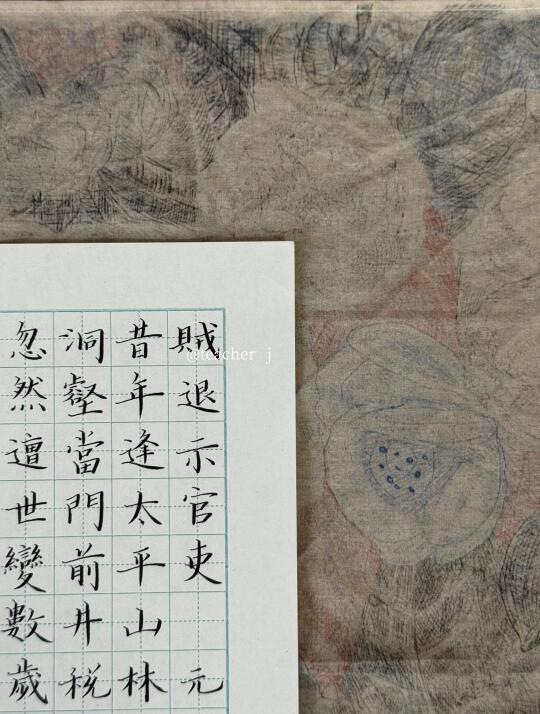 賊退示官吏 元
昔年逢太平山林
洞壑當門前井稅
忽然遭世變數歲
@teacher j